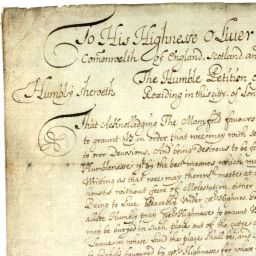 To His Highnesse Oliver
Comonwelth of England, Scotland, and
The Humble Petition of
Humbly Sheweth Reziding in this citty, of Lon
That Acknolledging The Manyfold favours
to graunt Us in order, that wee may with se
to our Devotions, And being desirous to be fa
Humblenesse by the best meanes which ma
Writing as that wee may theruse meete at
houses without feere of Molestation either
Being to live Peaceably Under
allsoe Humbly pray your Highnesse to graunt
may be buryed in such place out of the cittye
Leave in whose Land this place shall be, and
Highly favoured by your Highnesse for whose